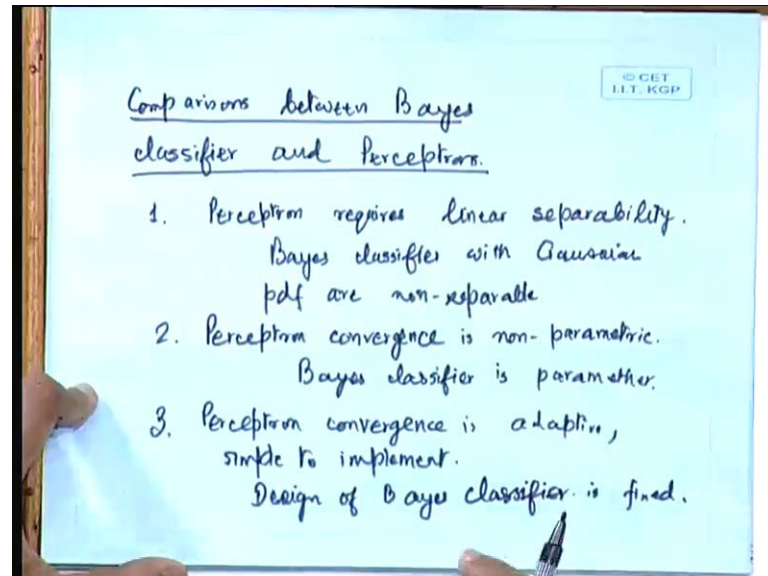 © CET
I.I.T. KGP
Comparisons between Bayes
classifier and Perceptron.
1. Perceptron requires linear separability.
Bayes classifier with Gaussian
pdf are non-separable
2. Perceptron convergence is non-parametric.
Bayes classifier is parametric.
3. Perceptron convergence is adaptive,
simple to implement.
Design of Bayes classifier is fixed.